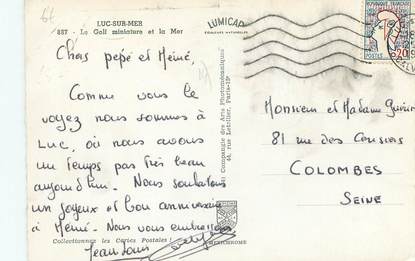 LUC-SUR-MER
887 - Le Golf miniature et la Mer
LUMICAP
Chers pépé et Mémé,
Comme vous le
voyez nous sommes à
Luc, où nous avons
un temps pas très beau
aujourd'hui. Nous souhaitons
un joyeux et bon anniversaire
à Mémé. Nous vous embrassons
Jean Louis
Collectionnez les Cartes Postales !
MEXICHROME
Compagnie des Arts Photomécaniques
44, rue Letellier, Paris-15e
REPUBLIQUE FRANÇAISE
0,20
Monsieur et Madame
81 rue des
COLOMBES
SEINE